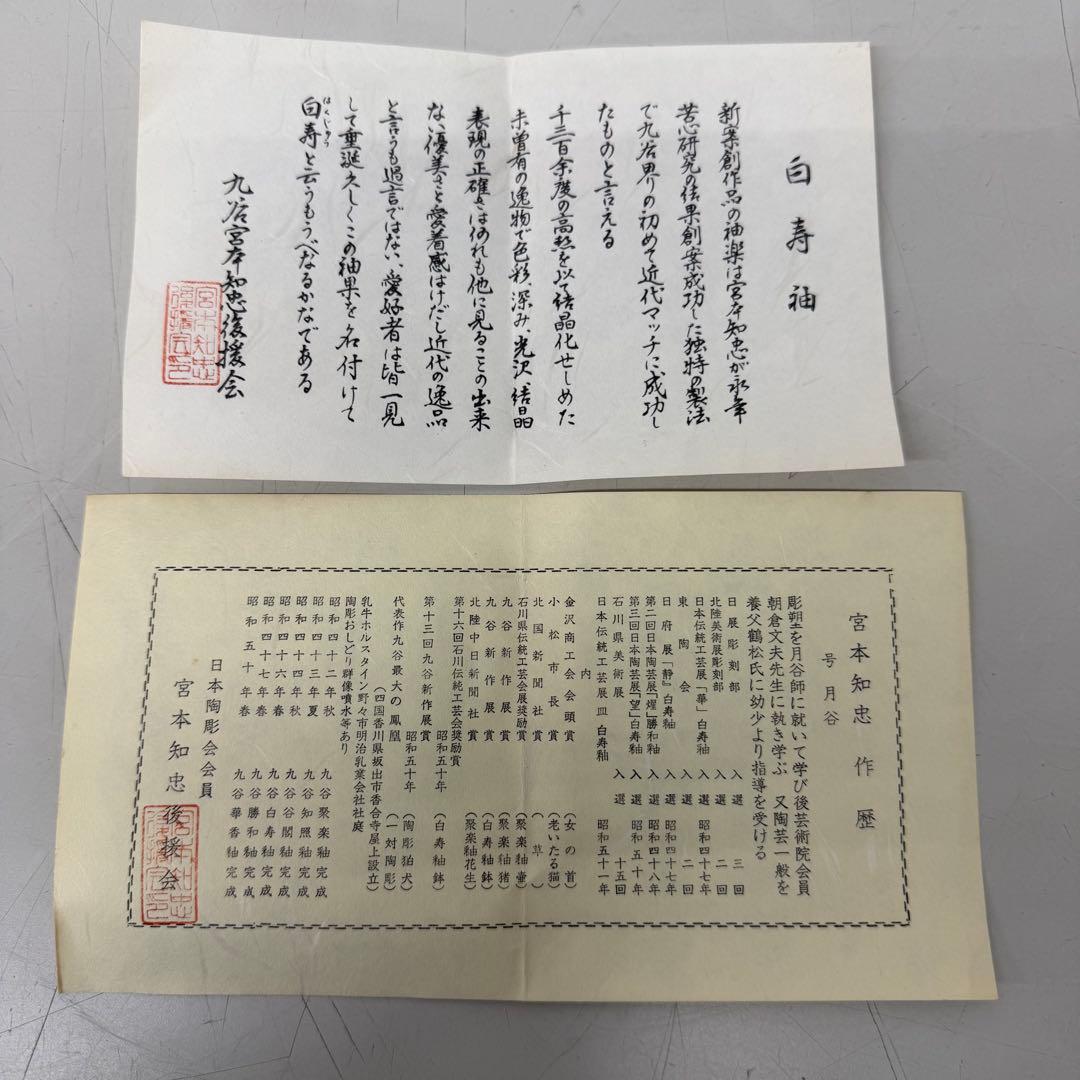 白寿釉
新案創作品の釉楽は宮本知忠が永年
苦心研究の結果創案成功した独特の製法
で九谷界りの初めて近代マッチに成功し
たものと言える
千三百余度の高熱を以て結晶化せしめた
未曽有の逸物で色彩、深み、光沢、結晶
表現の正確さは何れも他に見ることの出来
ない優美さと愛着感はけだし近代の逸品
と言うも過言ではない、愛好者は皆一見
して重誕久しくこの釉果を名付けて
白寿と云うもうべなるかなである
はくじゅ
九谷宮本知忠後援会
宮本知忠後援会印
宮本知忠作歴
号月谷
彫塑を月谷師に就いて学び後芸術院会員
朝倉文夫先生に執き学ぶ 又陶芸一般を
養父鶴松氏に幼少より指導を受ける
日展彫刻部 入選 三回
北陸美術展彫刻部 入選 二回
日本伝統工芸展「華」白寿釉 入選 昭和四十七年
東陶会 入選 二回
日府展「静」白寿釉 入選 昭和四十七年
第二回日本陶芸展「燿」勝和釉 入選 昭和四十八年
第三回日本陶芸展「望」白寿釉 入選 昭和五十年
石川県美術展 入選 十五回
日本伝統工芸展 皿 白寿釉 入選 昭和五十一年
内
金沢商工会会頭賞 (女の首)
小松市長賞 (老いたる猫)
北国新聞社賞 (草)
石川県伝統工芸会展奨励賞 (聚楽釉壷)
九谷新作展賞 (聚楽釉猪)
九谷新作展賞 (白寿釉鉢)
北陸中日新聞社賞 (聚楽釉花生)
第十六回石川伝統工芸会奨励賞
昭和五十年 (白寿釉鉢)
第十三回九谷新作展賞
昭和五十年 (陶彫狛犬)
代表作九谷最大の鳳凰 (一対陶彫)
(四国香川県坂出市香合寺屋上設立)
乳牛ホルスタイン野々市明治乳業会社社庭
陶彫おしどり群像噴水等あり
昭和四十二年秋 九谷聚楽釉完成
昭和四十三年夏 九谷知照釉完成
昭和四十四年秋 九谷谷閣釉完成
昭和四十六年春 九谷白寿釉完成
昭和四十七年春 九谷勝和釉完成
昭和五十年春 九谷華香釉完成
日本陶彫会会員
宮本知忠後援会
宮本知忠後援会印